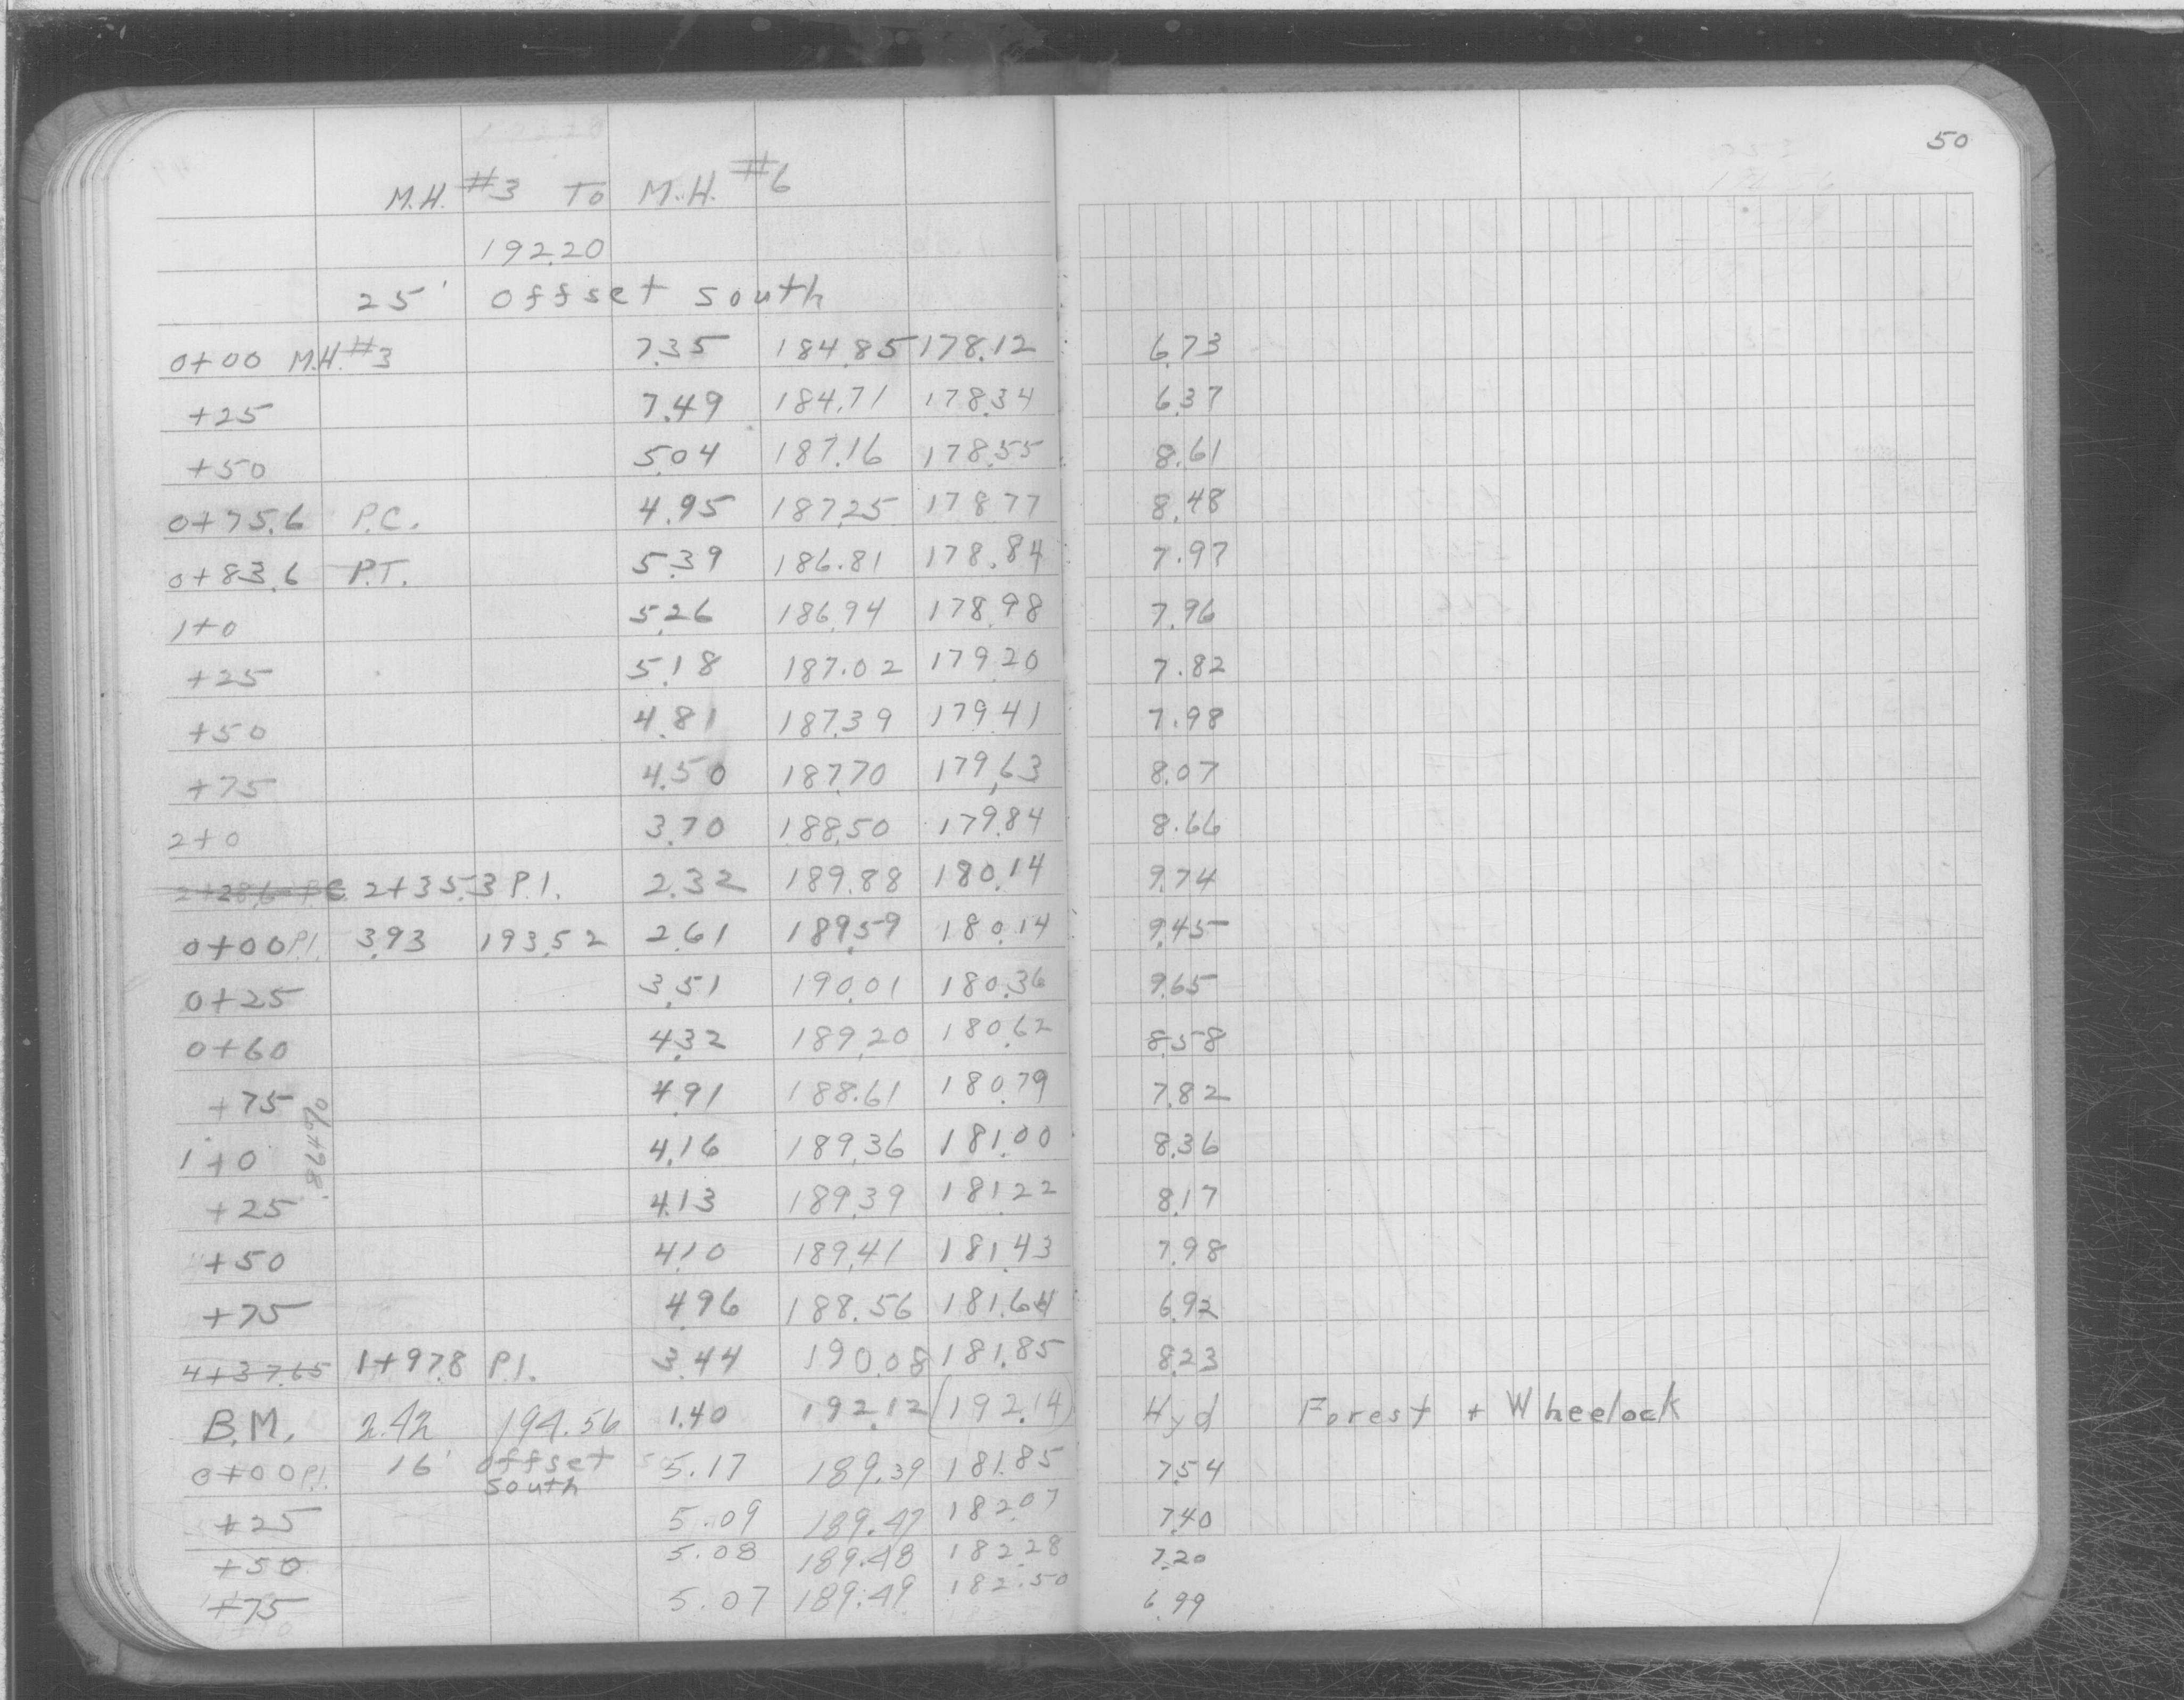 50
M.H. #3 To M.H. #6
192.20
25' offset south
0+00 M.H. #3 7.35 184.85 178.12 6.73
+25 7.49 184.71 178.34 6.37
+50 5.04 187.16 178.55 8.61
0+75.6 P.C. 4.95 187.25 178.77 8.48
0+83.6 P.T. 5.39 186.81 178.84 7.97
1+0 5.26 186.94 178.98 7.96
+25 5.18 187.02 179.20 7.82
+50 4.81 187.39 179.41 7.98
+75 4.50 187.70 179.63 8.07
2+0 3.70 188.50 179.84 8.66
2+28.6 P.C. 2+35.3 P.I. 2.32 189.88 180.14 9.74
0+00 P.I. 3.93 193.52 2.61 189.59 180.14 9.45
0+25 3.51 190.01 180.36 9.65
0+60 4.32 189.20 180.62 8.58
+75 4.91 188.61 180.79 7.82
1+0 4.16 189.36 181.00 8.36
.8649%
+25 4.13 189.39 181.22 8.17
+50 4.10 189.41 181.43 7.98
+75 4.96 188.56 181.64 6.92
4+37.65 1+97.8 P.I. 3.44 190.08 181.85 8.23
B.M. 2.42 194.56 1.40 192.12 (192.14) Hyd Forest + Wheelock
0+00 P.I. 16' offset south 5.17 189.39 181.85 7.54
+25 5.09 189.47 182.07 7.40
+50 5.08 189.48 182.28 7.20
+75 5.07 189.49 182.50 6.99